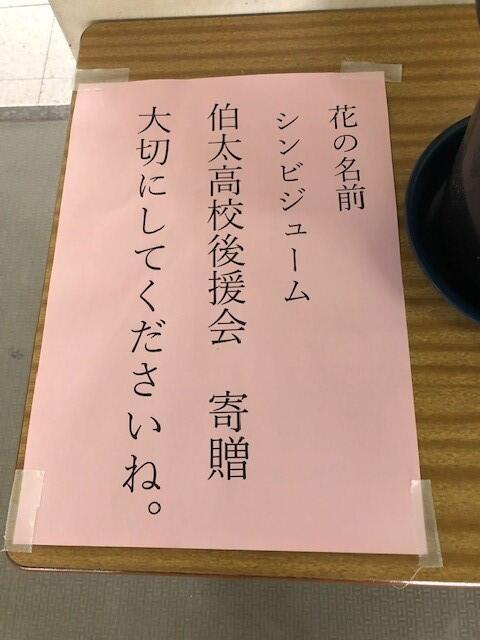 花の名前
シンビジューム
伯太高校後援会　寄贈
大切にしてくださいね。